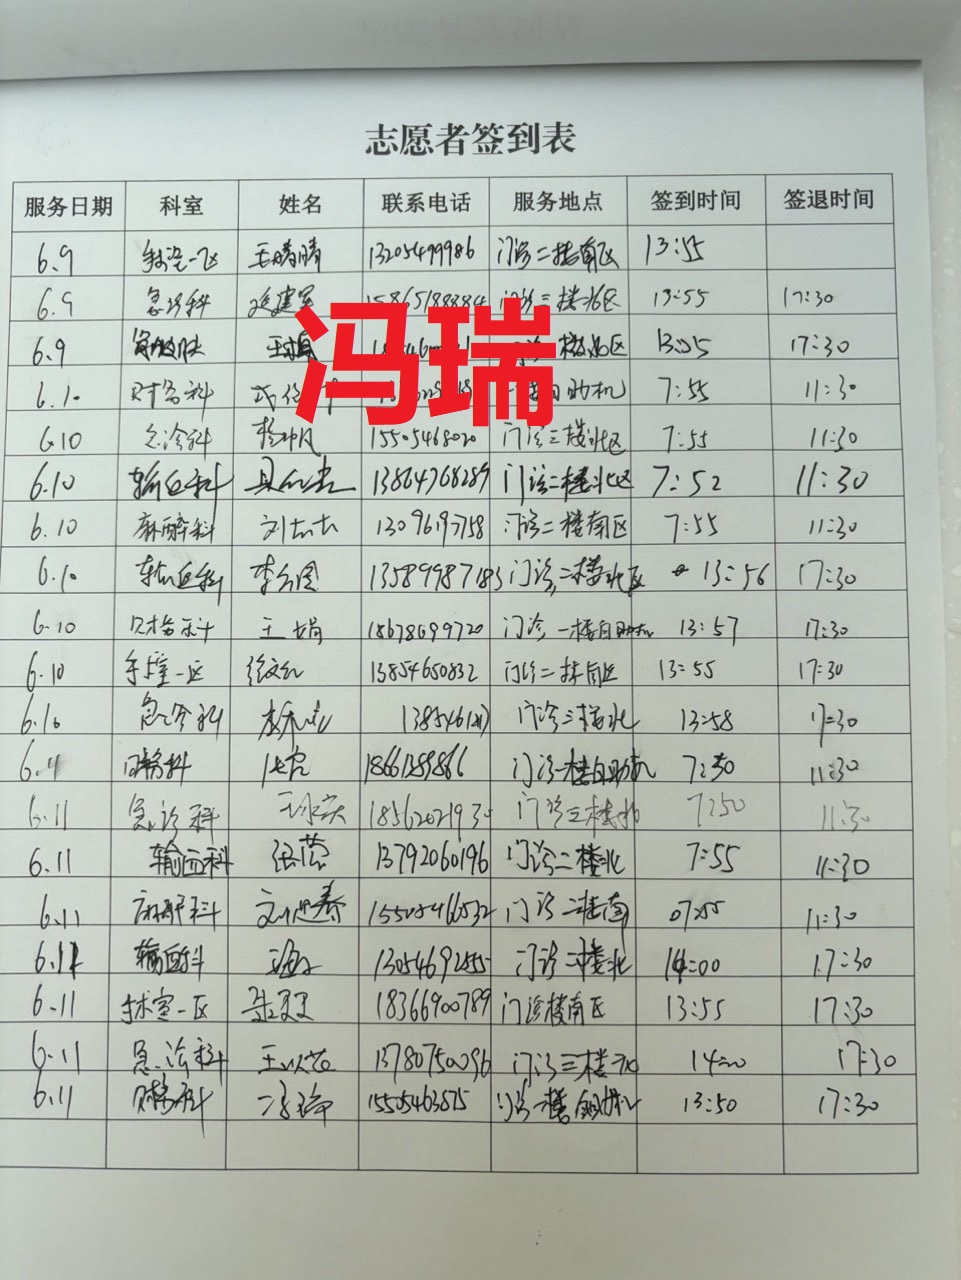 志愿者签到表
服务日期 科室 姓名 联系电话 服务地点 签到时间 签退时间
6.9 手术室一区 王晴晴 13205499986 门诊二楼南区 13:55
6.9 急诊科 建军 15865188884 门诊三楼北区 13:55 17:30
6.9 王娟 门诊 北区 13:55 17:30
冯瑞
6.10 财务科 自助机 7:55 11:30
6.10 急诊科 杨帅帆 15505468020 门诊三楼北区 7:55 11:30
6.10 输血科 13864768289 门诊二楼北区 7:52 11:30
6.10 麻醉科 刘志杰 门诊二楼南区 7:55 11:30
6.10 输血科 13589987183 门诊二楼北区 13:56 17:30
6.10 财务科 王娟 18678699720 门诊一楼自助机 13:57 17:30
6.10 手术室一区 徐文红 13854650832 门诊二楼南区 13:55 17:30
6.10 急诊科 门诊三楼北 13:58 17:30
财务科 门诊一楼自助机 7:50 11:30
6.11 急诊科 王永庆 门诊三楼北 7:50 11:30
6.11 输血科 张蕾 13792060196 门诊二楼北 7:55 11:30
6.11 麻醉科 15505466532 门诊二楼南 07:55 11:30
6.11 输血科 13054692555 门诊二楼北 14:00 17:30
6.11 手术室一区 18366900789 门诊楼南区 13:55 17:30
6.11 急诊科 13780750096 门诊三楼北 14:00 17:30
6.11 财务科 冯瑞 15505463875 门诊一楼自助机 13:50 17:30